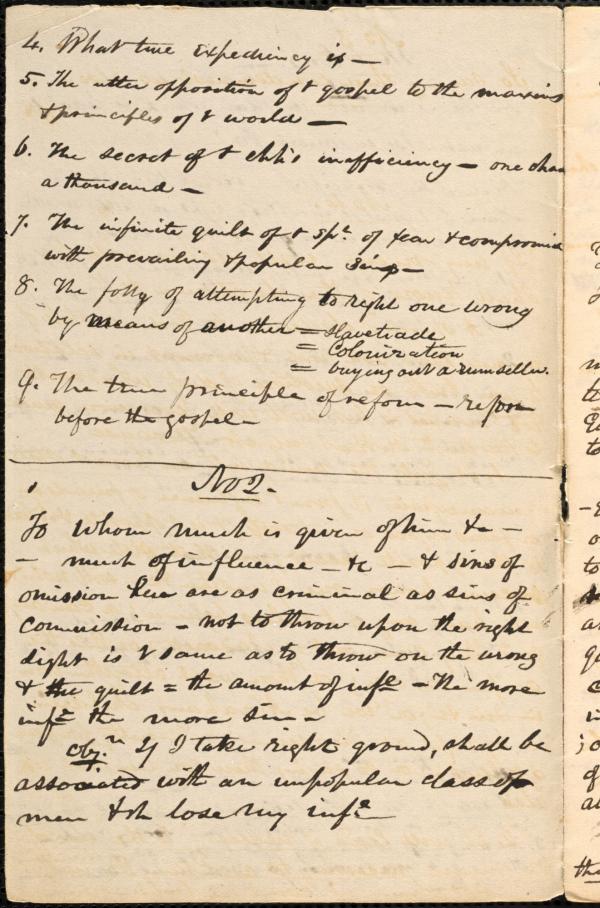 4. What true expediency is —
5. The utter opposition of & gospel to the maxims
& principles of & world —
6. The secret of & chh's inefficiency — one chase
a thousand —
7. The infinite guilt of & spt. of fear & compromise
with prevailing & popular sins —
8. The folly of attempting to right one wrong
by means of another = Slavetrade
= Colonization
= buying out a rumseller.
9. The true principle of reform — repent
before the gospel —
No 2.
To whom much is given of him &c —
— much of influence — &c — & sins of
omission here are as criminal as sins of
commission — not to throw upon the right
sight is & same as to throw on the wrong
& the guilt = the amount of infe — The more
infe the more sin —
obj.n If I take right ground, shall be
associated with an unpopular class of
men & sh lose my infe